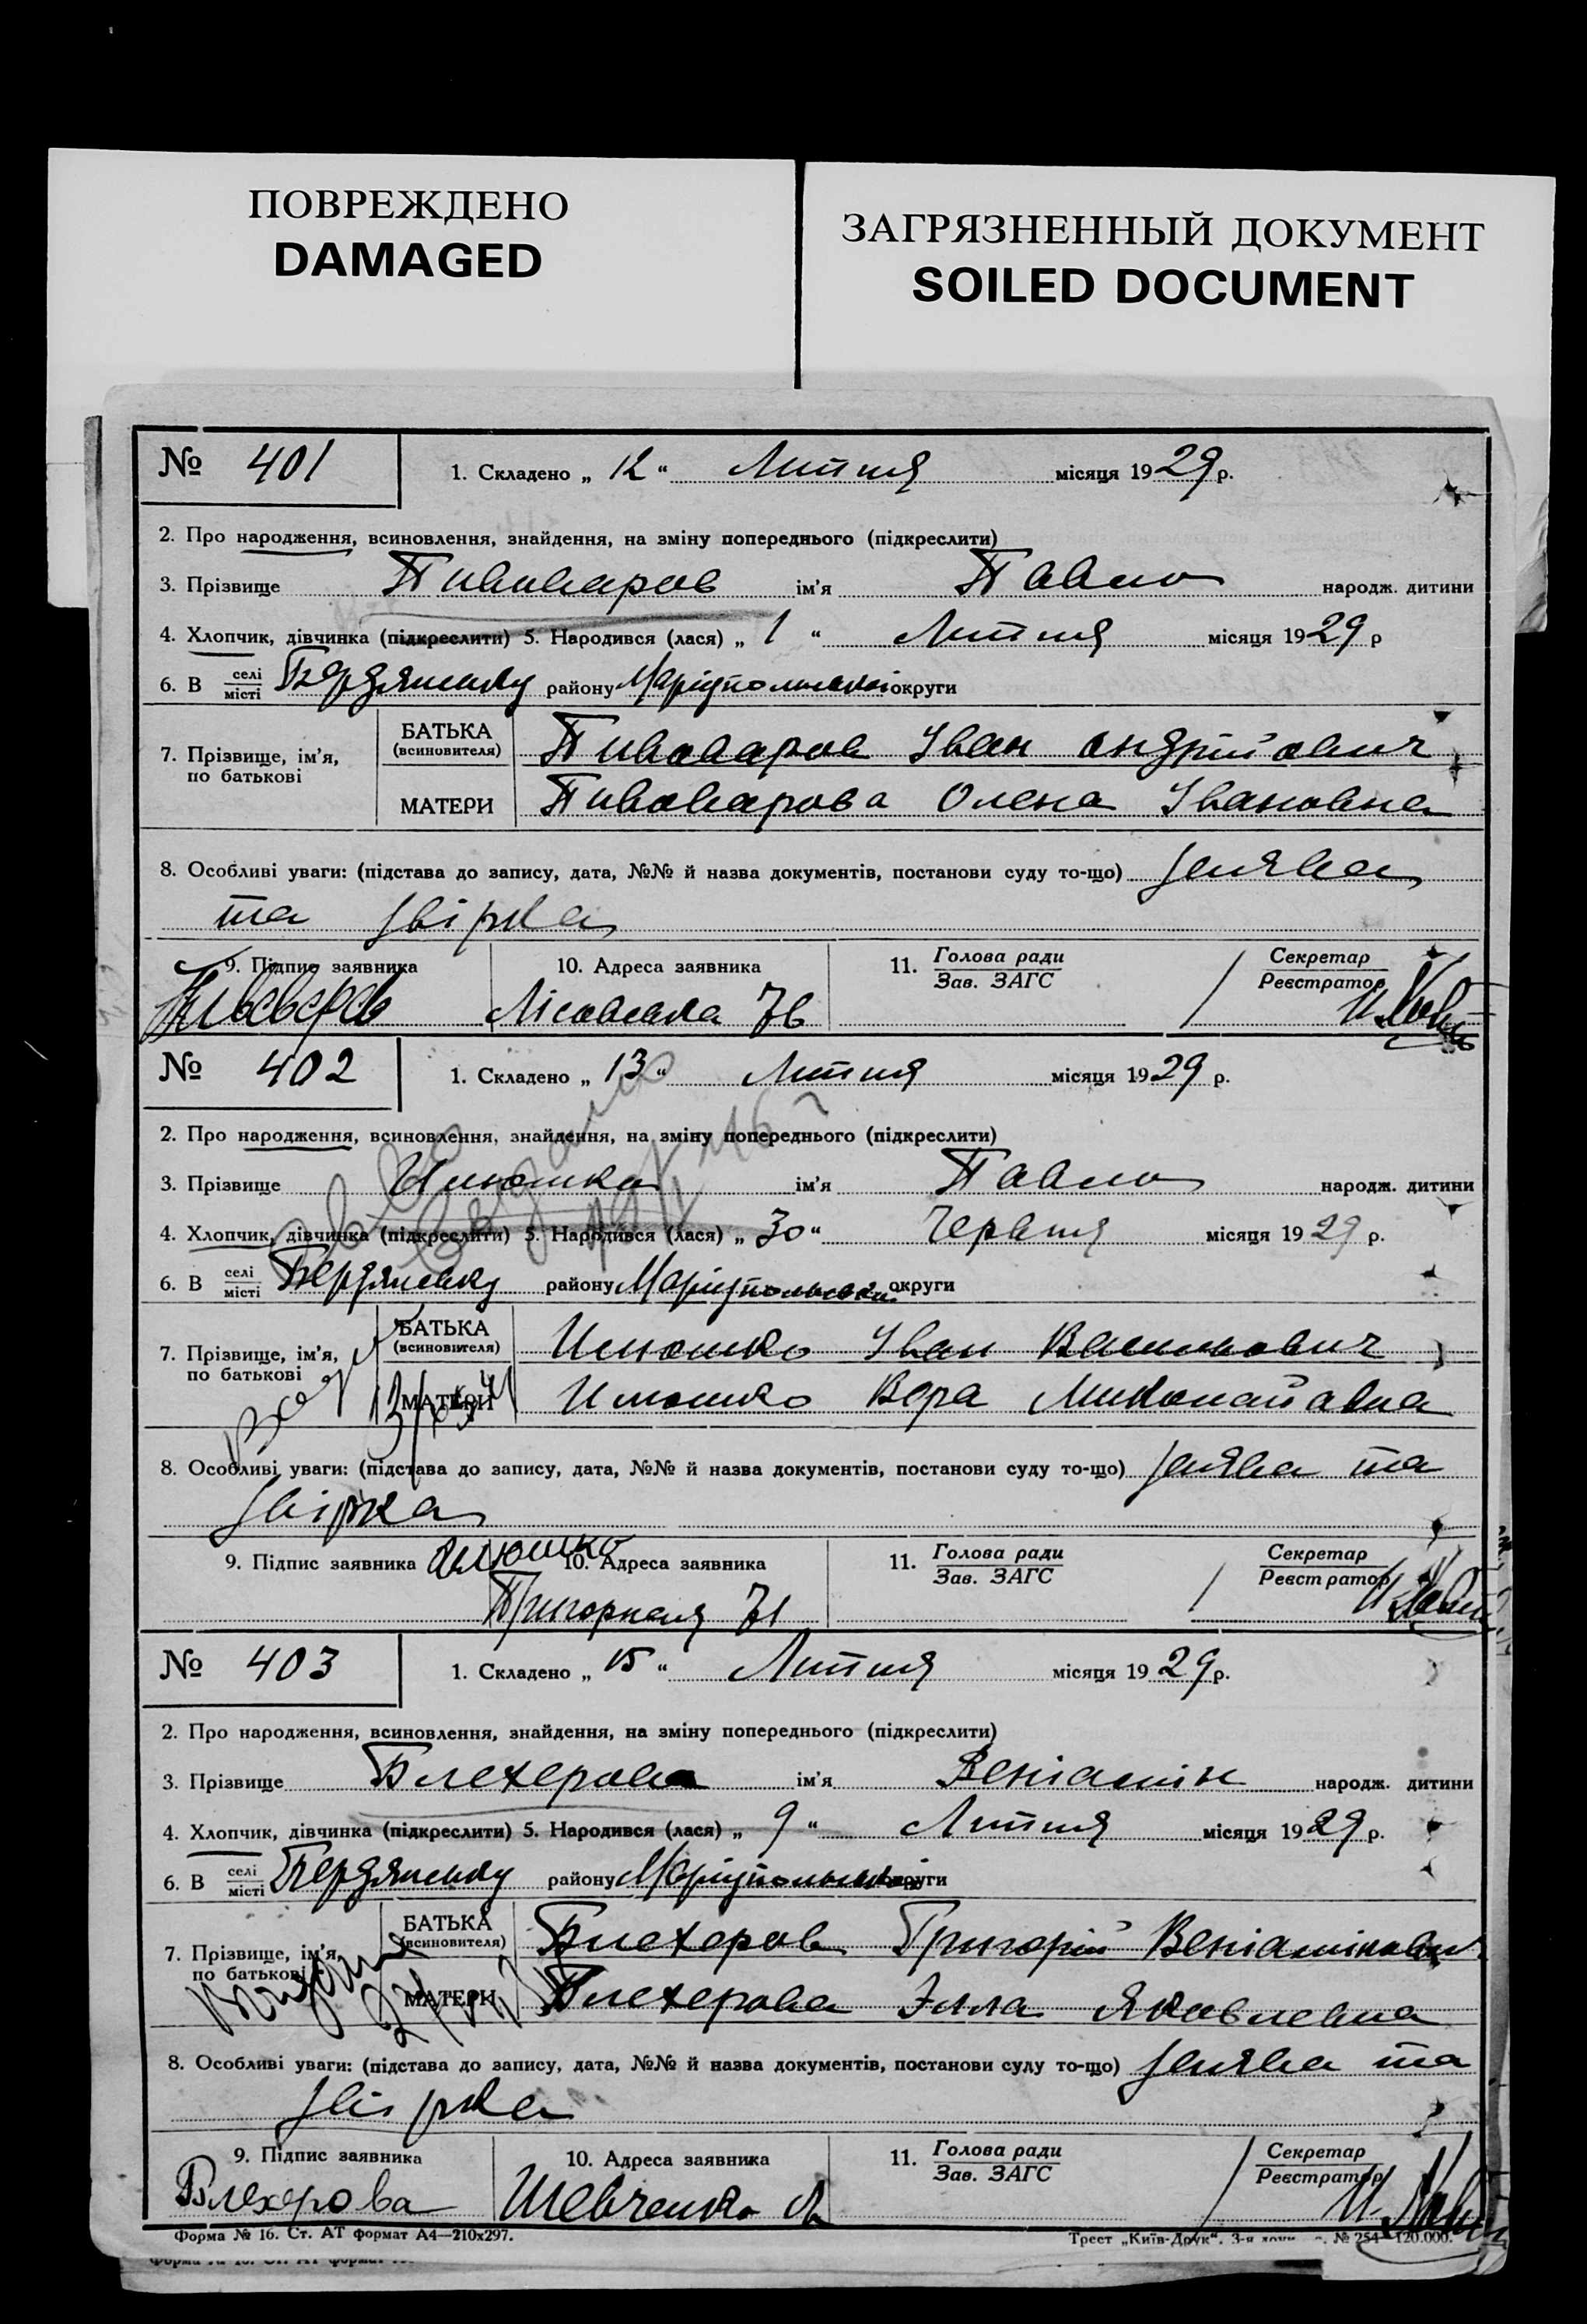 ПОВРЕЖДЕНО
DAMAGED
ЗАГРЯЗНЕННЫЙ ДОКУМЕНТ
SOILED DOCUMENT
№ 401
1. Складено „ 12 “ Липня місяця 1929 р.
2. Про народження, всиновлення, знайдення, на зміну попереднього (підкреслити)
3. Прізвище Пивоваров ім'я Павло народж. дитини
4. Хлопчик, дівчинка (підкреслити) 5. Народився (лася) „ 1 “ Липня місяця 1929 р
6. В селі місті Бердянську району Маріупольської округи
7. Прізвище, ім'я, по батькові
БАТЬКА (всиновителя) Пивоваров Іван Андрійович
МАТЕРИ Пивоварова Олена Івановна
8. Особливі уваги: (підстава до запису, дата, №№ й назва документів, постанови суду то-що) Заява
та звірка
9. Підпис заявника 10. Адреса заявника 11. Голова ради Зав. ЗАГС Секретар Реєстратор
Лісовська 76
№ 402
1. Складено „ 13 “ Липня місяця 1929 р.
2. Про народження, всиновлення, знайдення, на зміну попереднього (підкреслити)
3. Прізвище Илюшко ім'я Павло народж. дитини
4. Хлопчик, дівчинка (підкреслити) 5. Народився (лася) „ 30 “ Червня місяця 1929 р.
6. В селі місті Бердянську району Маріупольськ. округи
7. Прізвище, ім'я, по батькові
БАТЬКА (всиновителя) Илюшко Іван Васильович
МАТЕРИ Илюшко Вера Миколаївна
8. Особливі уваги: (підстава до запису, дата, №№ й назва документів, постанови суду то-що) Заява та
звірка
9. Підпис заявника Илюшко 10. Адреса заявника 11. Голова ради Зав. ЗАГС Секретар Реєстратор
71
№ 403
1. Складено „ 15 “ Липня місяця 1929 р.
2. Про народження, всиновлення, знайдення, на зміну попереднього (підкреслити)
3. Прізвище Блехеров ім'я Веніамін народж. дитини
4. Хлопчик, дівчинка (підкреслити) 5. Народився (лася) „ 9 “ Липня місяця 1929 р.
6. В селі місті Бердянську району Маріупольської округи
7. Прізвище, ім'я, по батькові
БАТЬКА (всиновителя) Блехеров Григорій Веніамінович
МАТЕРИ Блехерова Элла Яковлевна
8. Особливі уваги: (підстава до запису, дата, №№ й назва документів, постанови суду то-що) Заява та
звірка
9. Підпис заявника 10. Адреса заявника 11. Голова ради Зав. ЗАГС Секретар Реєстратор
Блехерова Шевченко
Форма № 16. Ст. АТ формат А4—210х297.
Трест „Київ-Друк“. 3-я № 254—120.000.